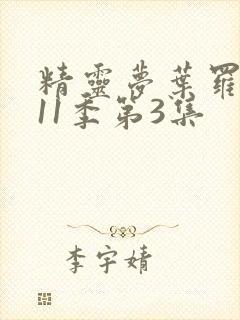 精靈夢葉羅
11季第3集
李宇婧